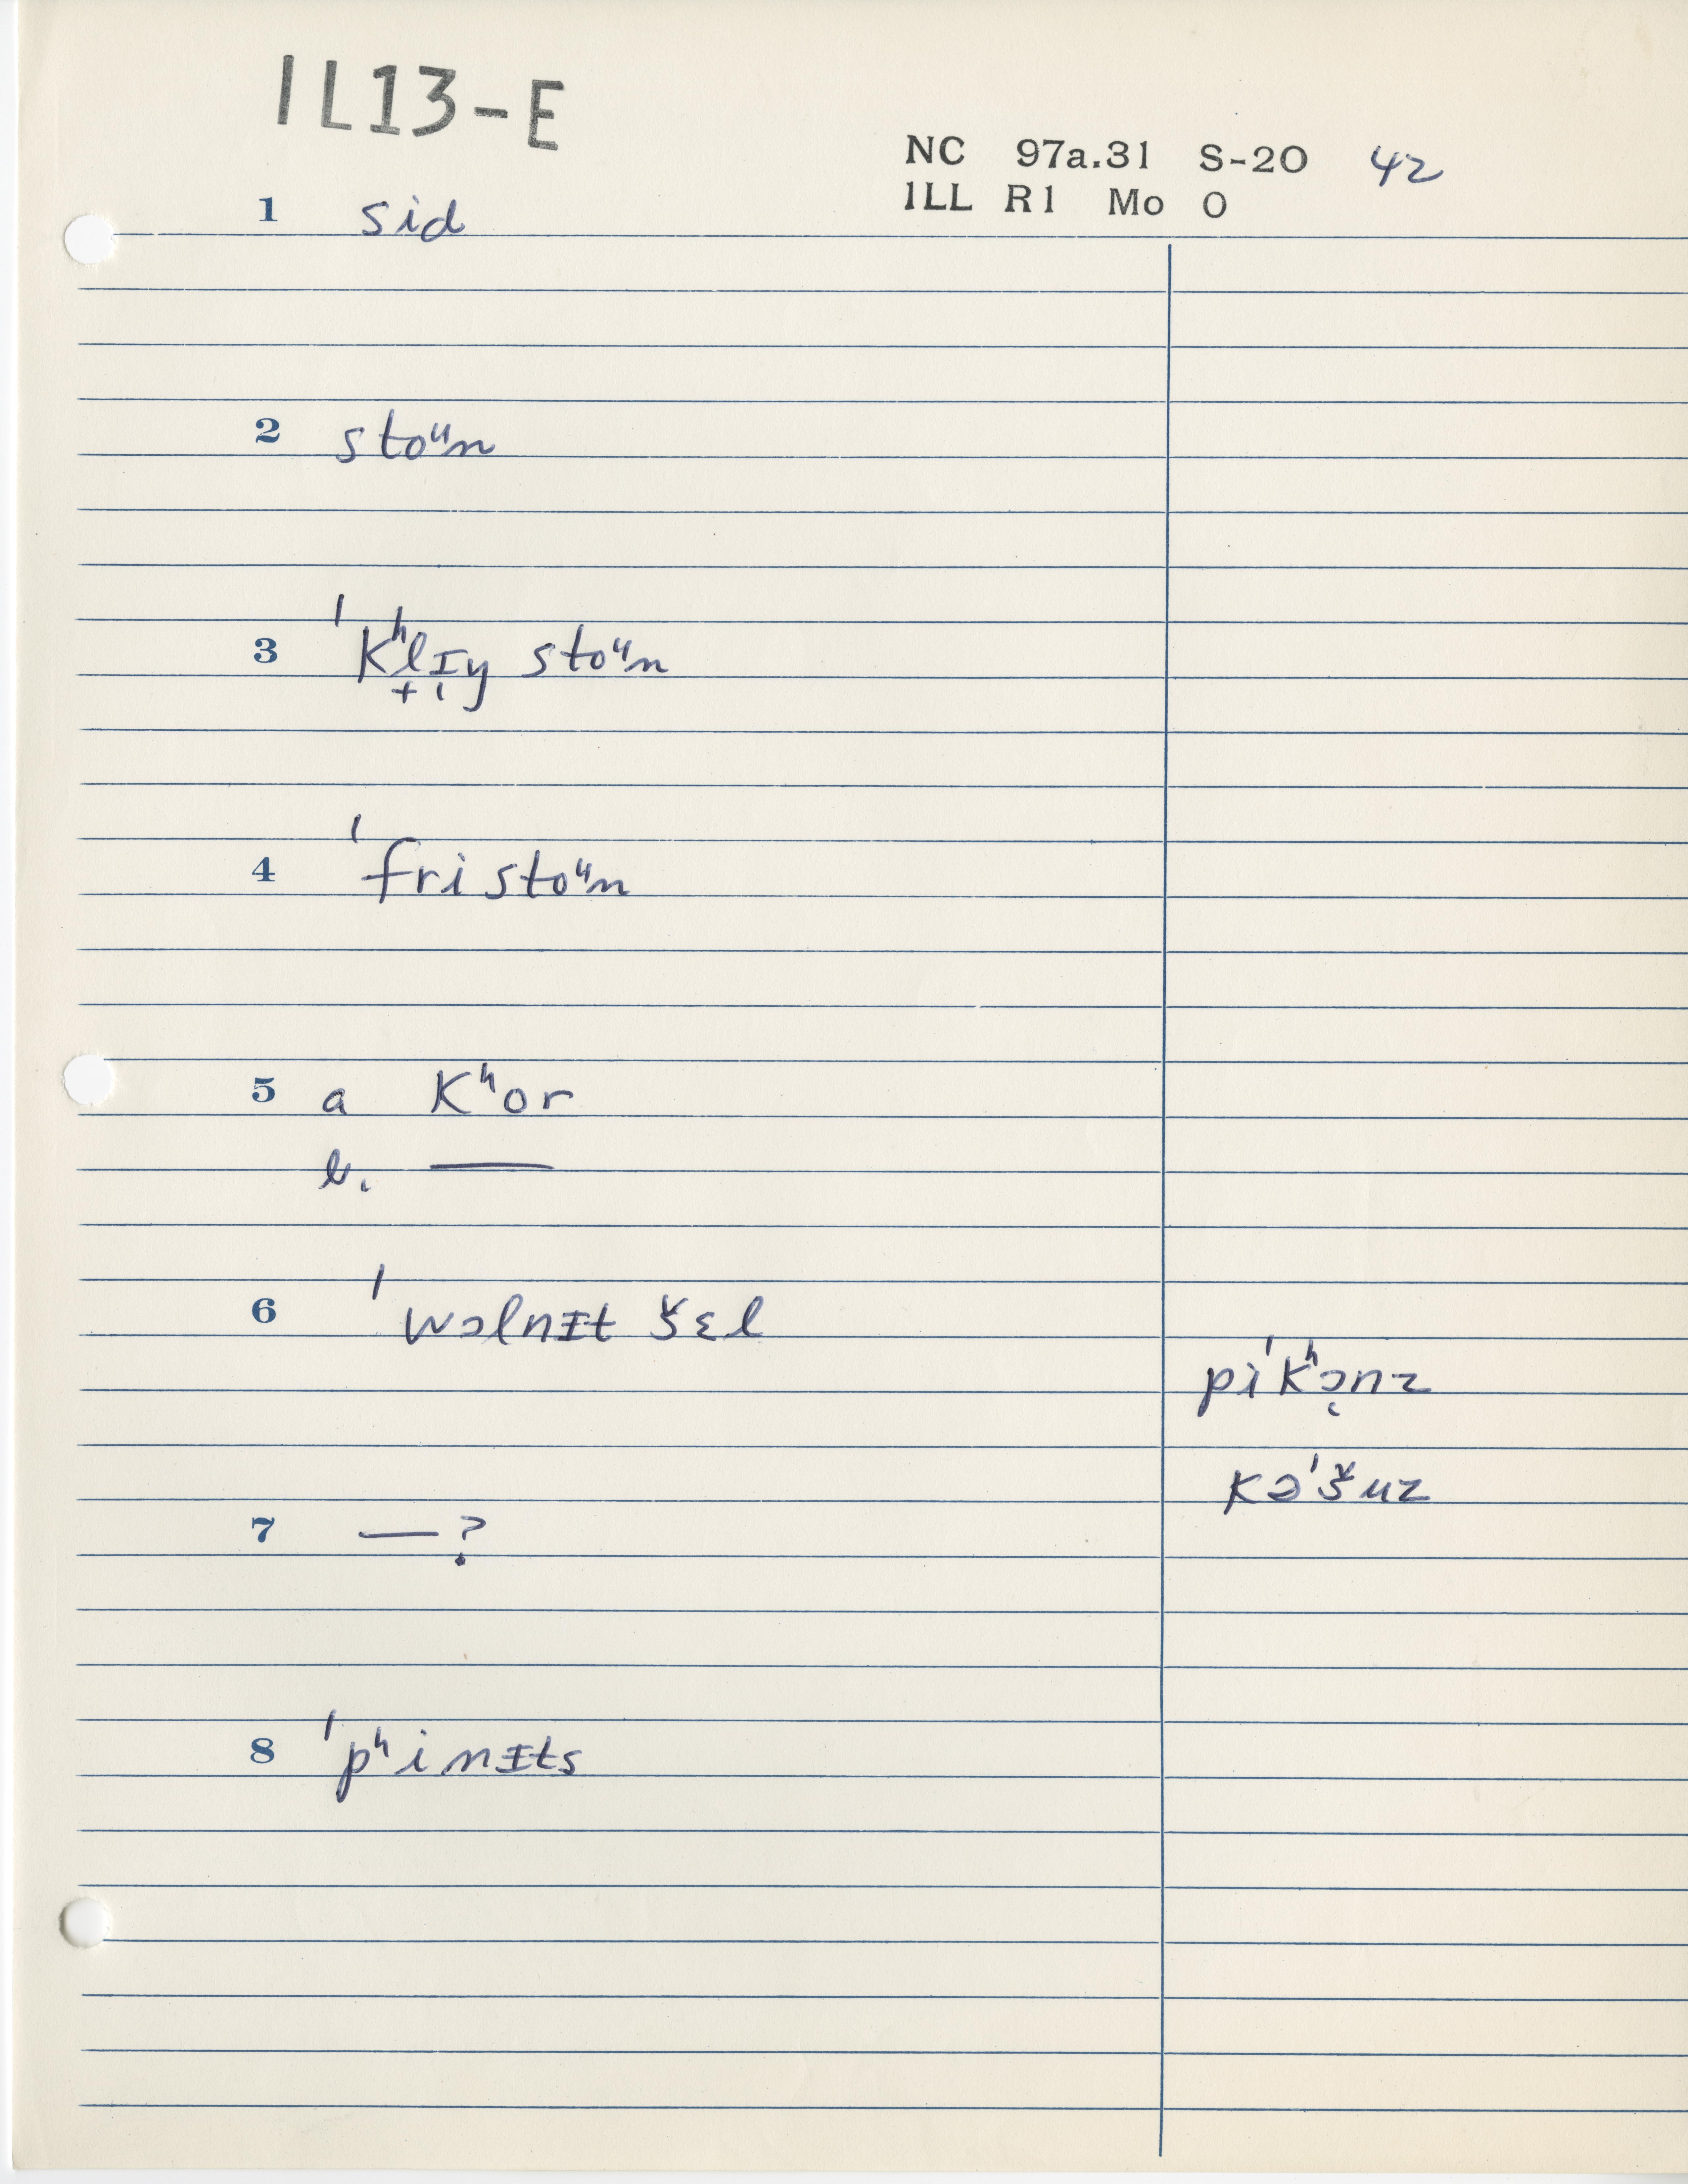 IL13-E
NC 97a.31 S-20 42
ILL R1 Mo O
1 sid
2 stoᵘn
3 ˈkʰl̟ɪ̨y stoᵘn
4 ˈfristoᵘn
5 a kʰor
b. —
6 ˈwɔlnᵻt šɛl
piˈkʰɔ̨nz
kəˈšuz
7 —?
8 ˈpʰinᵻts